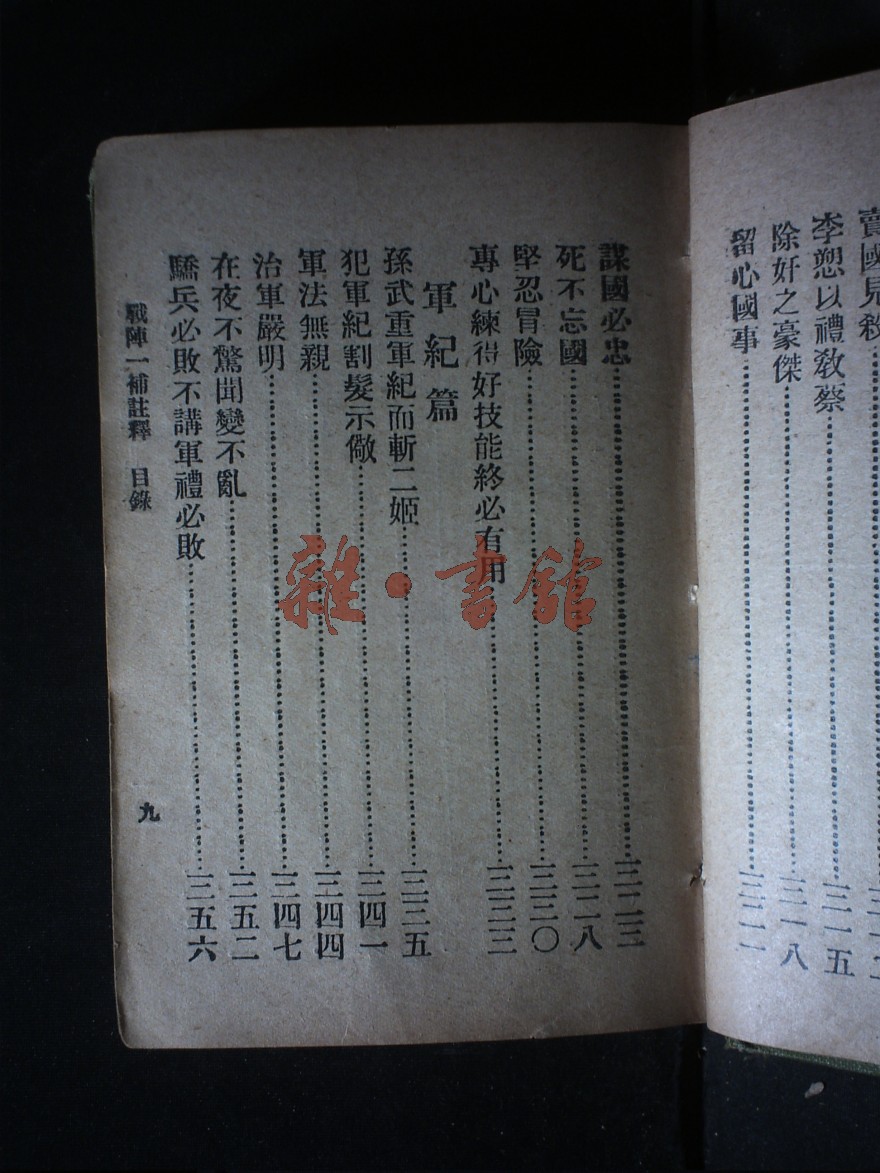 賣國見殺
李愬以禮教蔡 三一五
除奸之豪傑 三一八
留心國事 三二一
謀國必忠 三二三
死不忘國 三二八
堅忍冒險 三三〇
專心練得好技能終必有用 三三三
軍紀篇
孫武重軍紀而斬二姬 三三五
犯軍紀割髮示儆 三四一
軍法無親 三四四
治軍嚴明 三四七
在夜不驚聞變不亂 三五二
驕兵必敗不講軍禮必敗 三五六
戰陣一補註釋 目錄
九
雜·書館